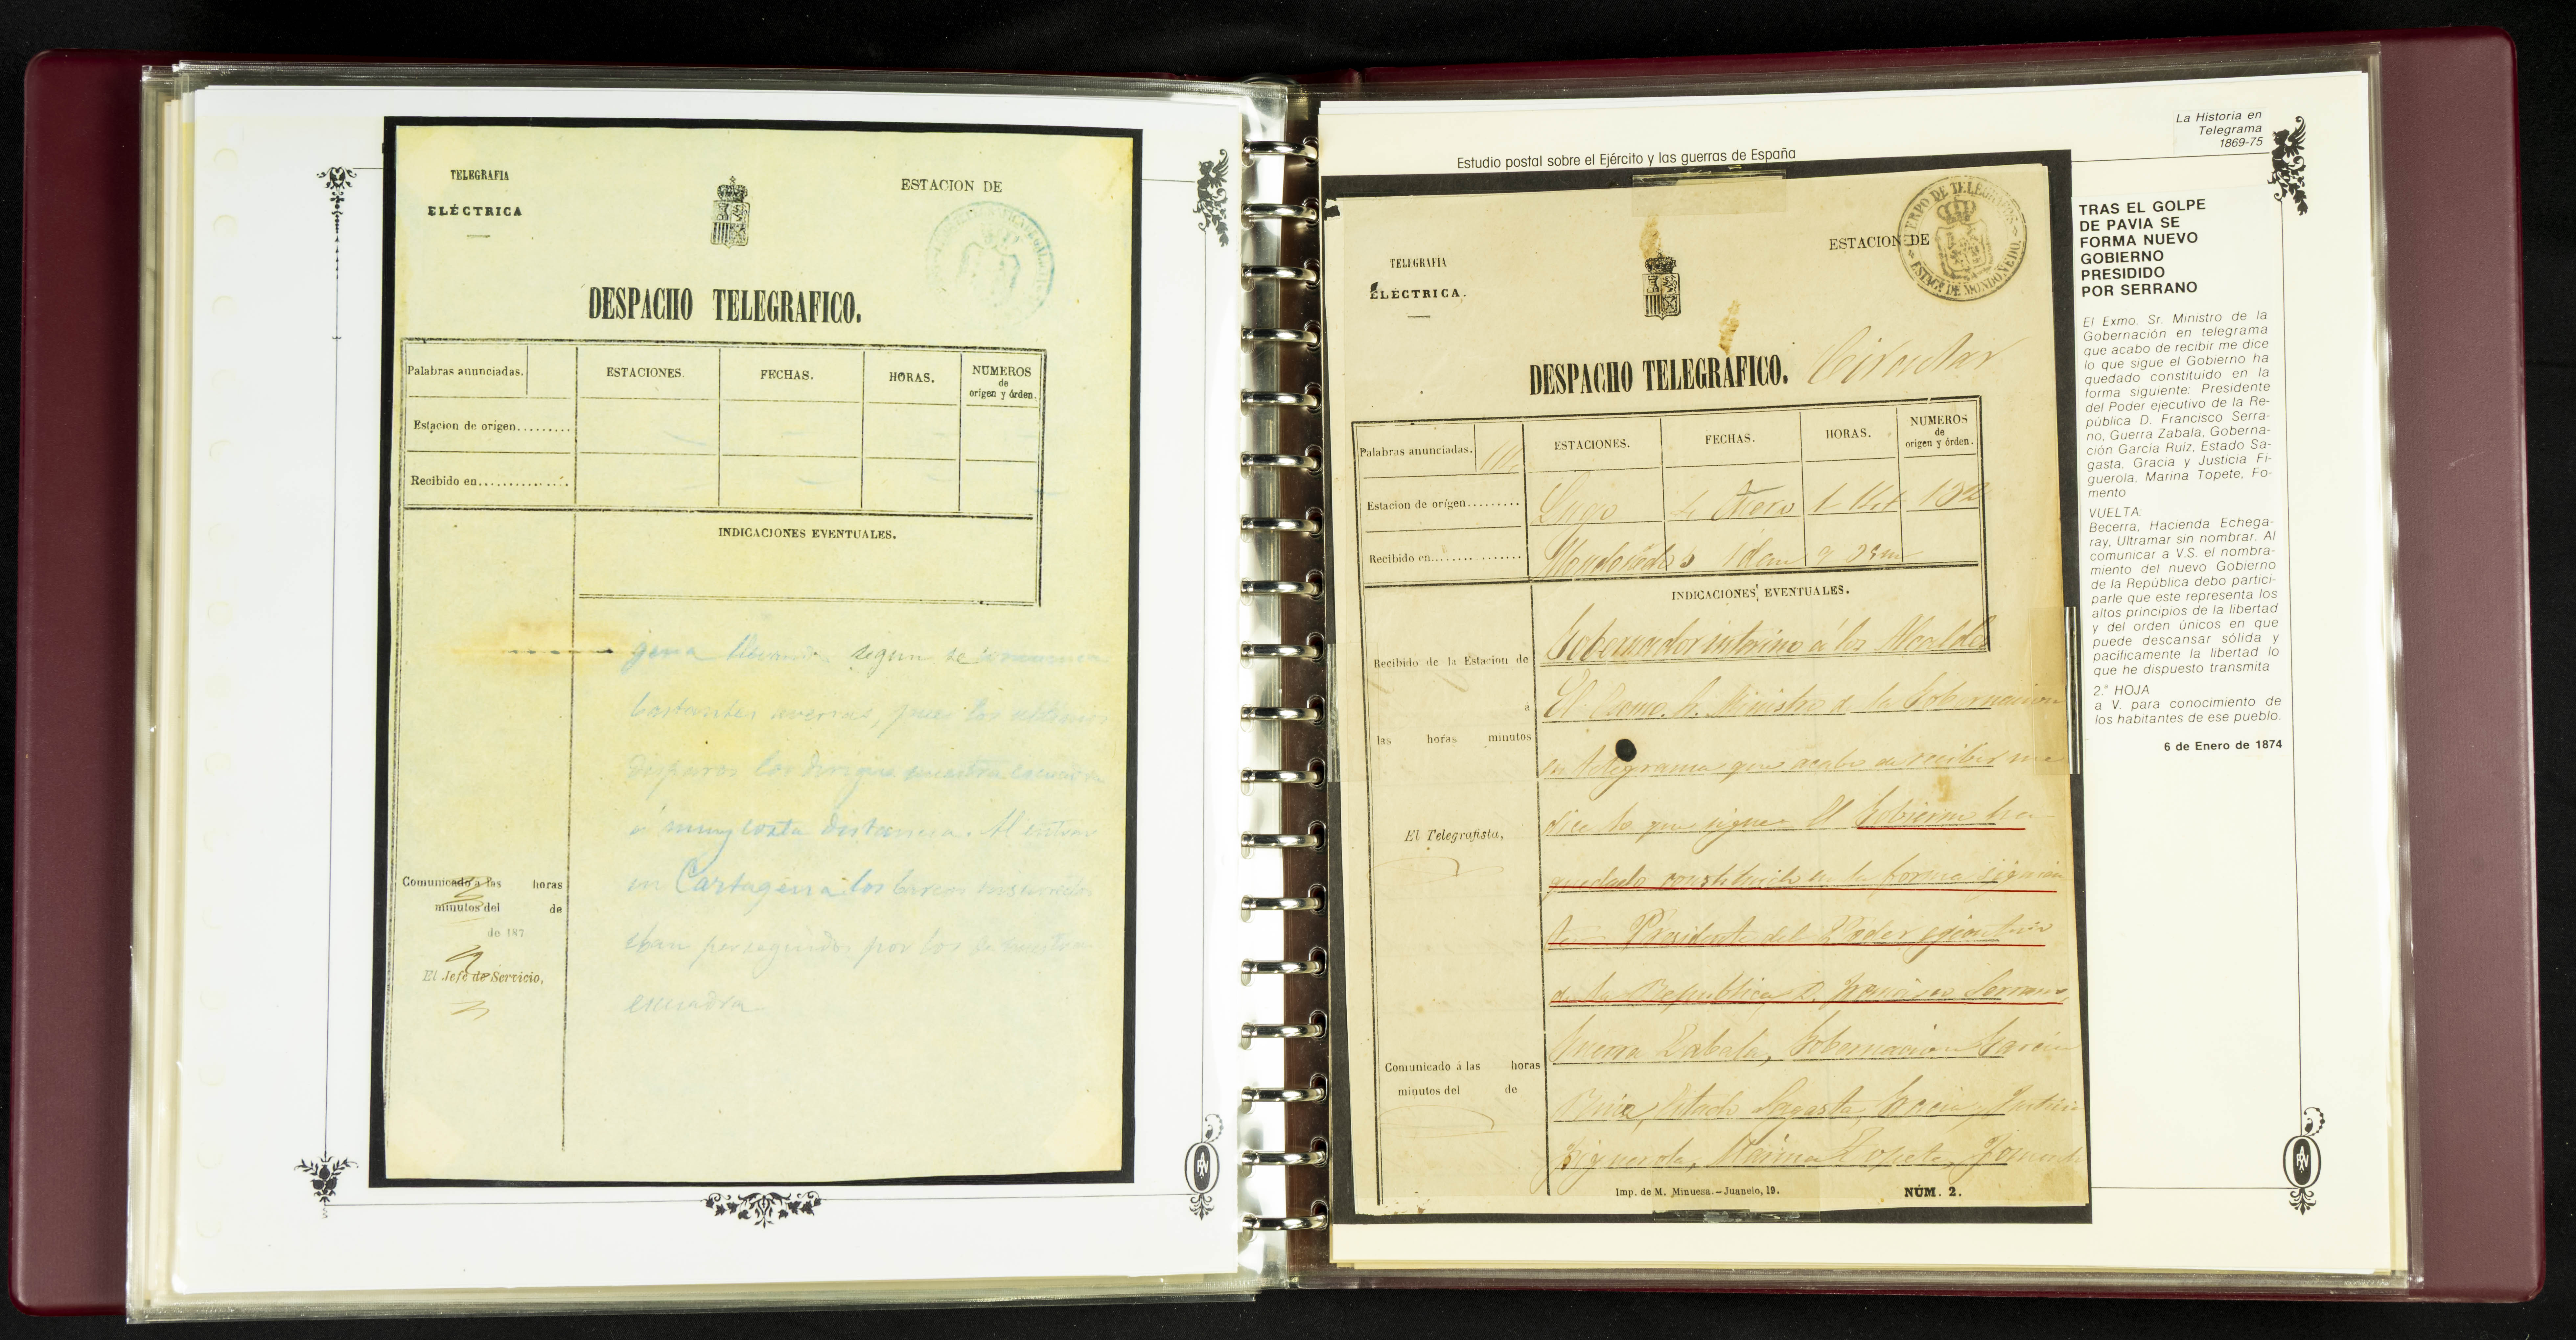 TELEGRAFIA
ELÉCTRICA
ESTACION DE
DESPACHO TELEGRAFICO.
Palabras anunciadas.
ESTACIONES.
FECHAS.
HORAS.
NUMEROS
de
origen y órden.
Estacion de origen.........
Recibido en..............
INDICACIONES EVENTUALES.
gena segun se comunica
bastantes averias, pues los ultimos
disparos los dirigia nuestra escuadra
á muy corta distancia. Al entrar
en Cartagena los barcos insurrectos
eban perseguidos por los de nuestra
escuadra.
Comunicado a las horas
minutos del de
de 187
El Jefe de Servicio,
La Historia en
Telegrama
1869-75
Estudio postal sobre el Ejército y las guerras de España
TELEGRAFIA
ELÉCTRICA.
ESTACION DE
CUERPO DE TELEGRAFOS
ESTACN. DE MONDOÑEDO.
DESPACHO TELEGRAFICO. Circular
Palabras anunciadas.
ESTACIONES.
FECHAS.
HORAS.
NUMEROS
de
origen y órden.
Estacion de orígen.........
Lugo 4 Enero 132
Recibido en...............
Mondoñedo Idem
INDICACIONES EVENTUALES.
Gobernador interino á los Alcaldes
Recibido de la Estacion de
á
las horas minutos
El Telegrafista,
El Exmo. Sr. Ministro de la Gobernacion
en telegrama que acabo de recibir me
dice lo que sigue El Gobierno ha
quedado constituido en la forma siguien
te Presidente del Poder ejecutivo
de la Republica D. Francisco Serrano,
Guerra Zabala, Gobernacion Garcia
Ruiz, Estado Sagasta, Gracia y Justicia
Figuerola, Marina Topete, Fomento
Comunicado á las horas
minutos del de
Imp. de M. Minuesa.—Juanelo, 19.
NÚM. 2.
TRAS EL GOLPE
DE PAVIA SE
FORMA NUEVO
GOBIERNO
PRESIDIDO
POR SERRANO
El Exmo. Sr. Ministro de la
Gobernación en telegrama
que acabo de recibir me dice
lo que sigue el Gobierno ha
quedado constituido en la
forma siguiente: Presidente
del Poder ejecutivo de la Re-
pública D. Francisco Serra-
no, Guerra Zabala, Goberna-
ción García Ruíz, Estado Sa-
gasta, Gracia y Justicia Fi-
guerola, Marina Topete, Fo-
mento
VUELTA
Becerra, Hacienda Echega-
ray, Ultramar sin nombrar. Al
comunicar a V.S. el nombra-
miento del nuevo Gobierno
de la República debo partici-
parle que este representa los
altos principios de la libertad
y del orden únicos en que
puede descansar sólida y
pacificamente la libertad lo
que he dispuesto transmita
2.ª HOJA
a V. para conocimiento de
los habitantes de ese pueblo.
6 de Enero de 1874